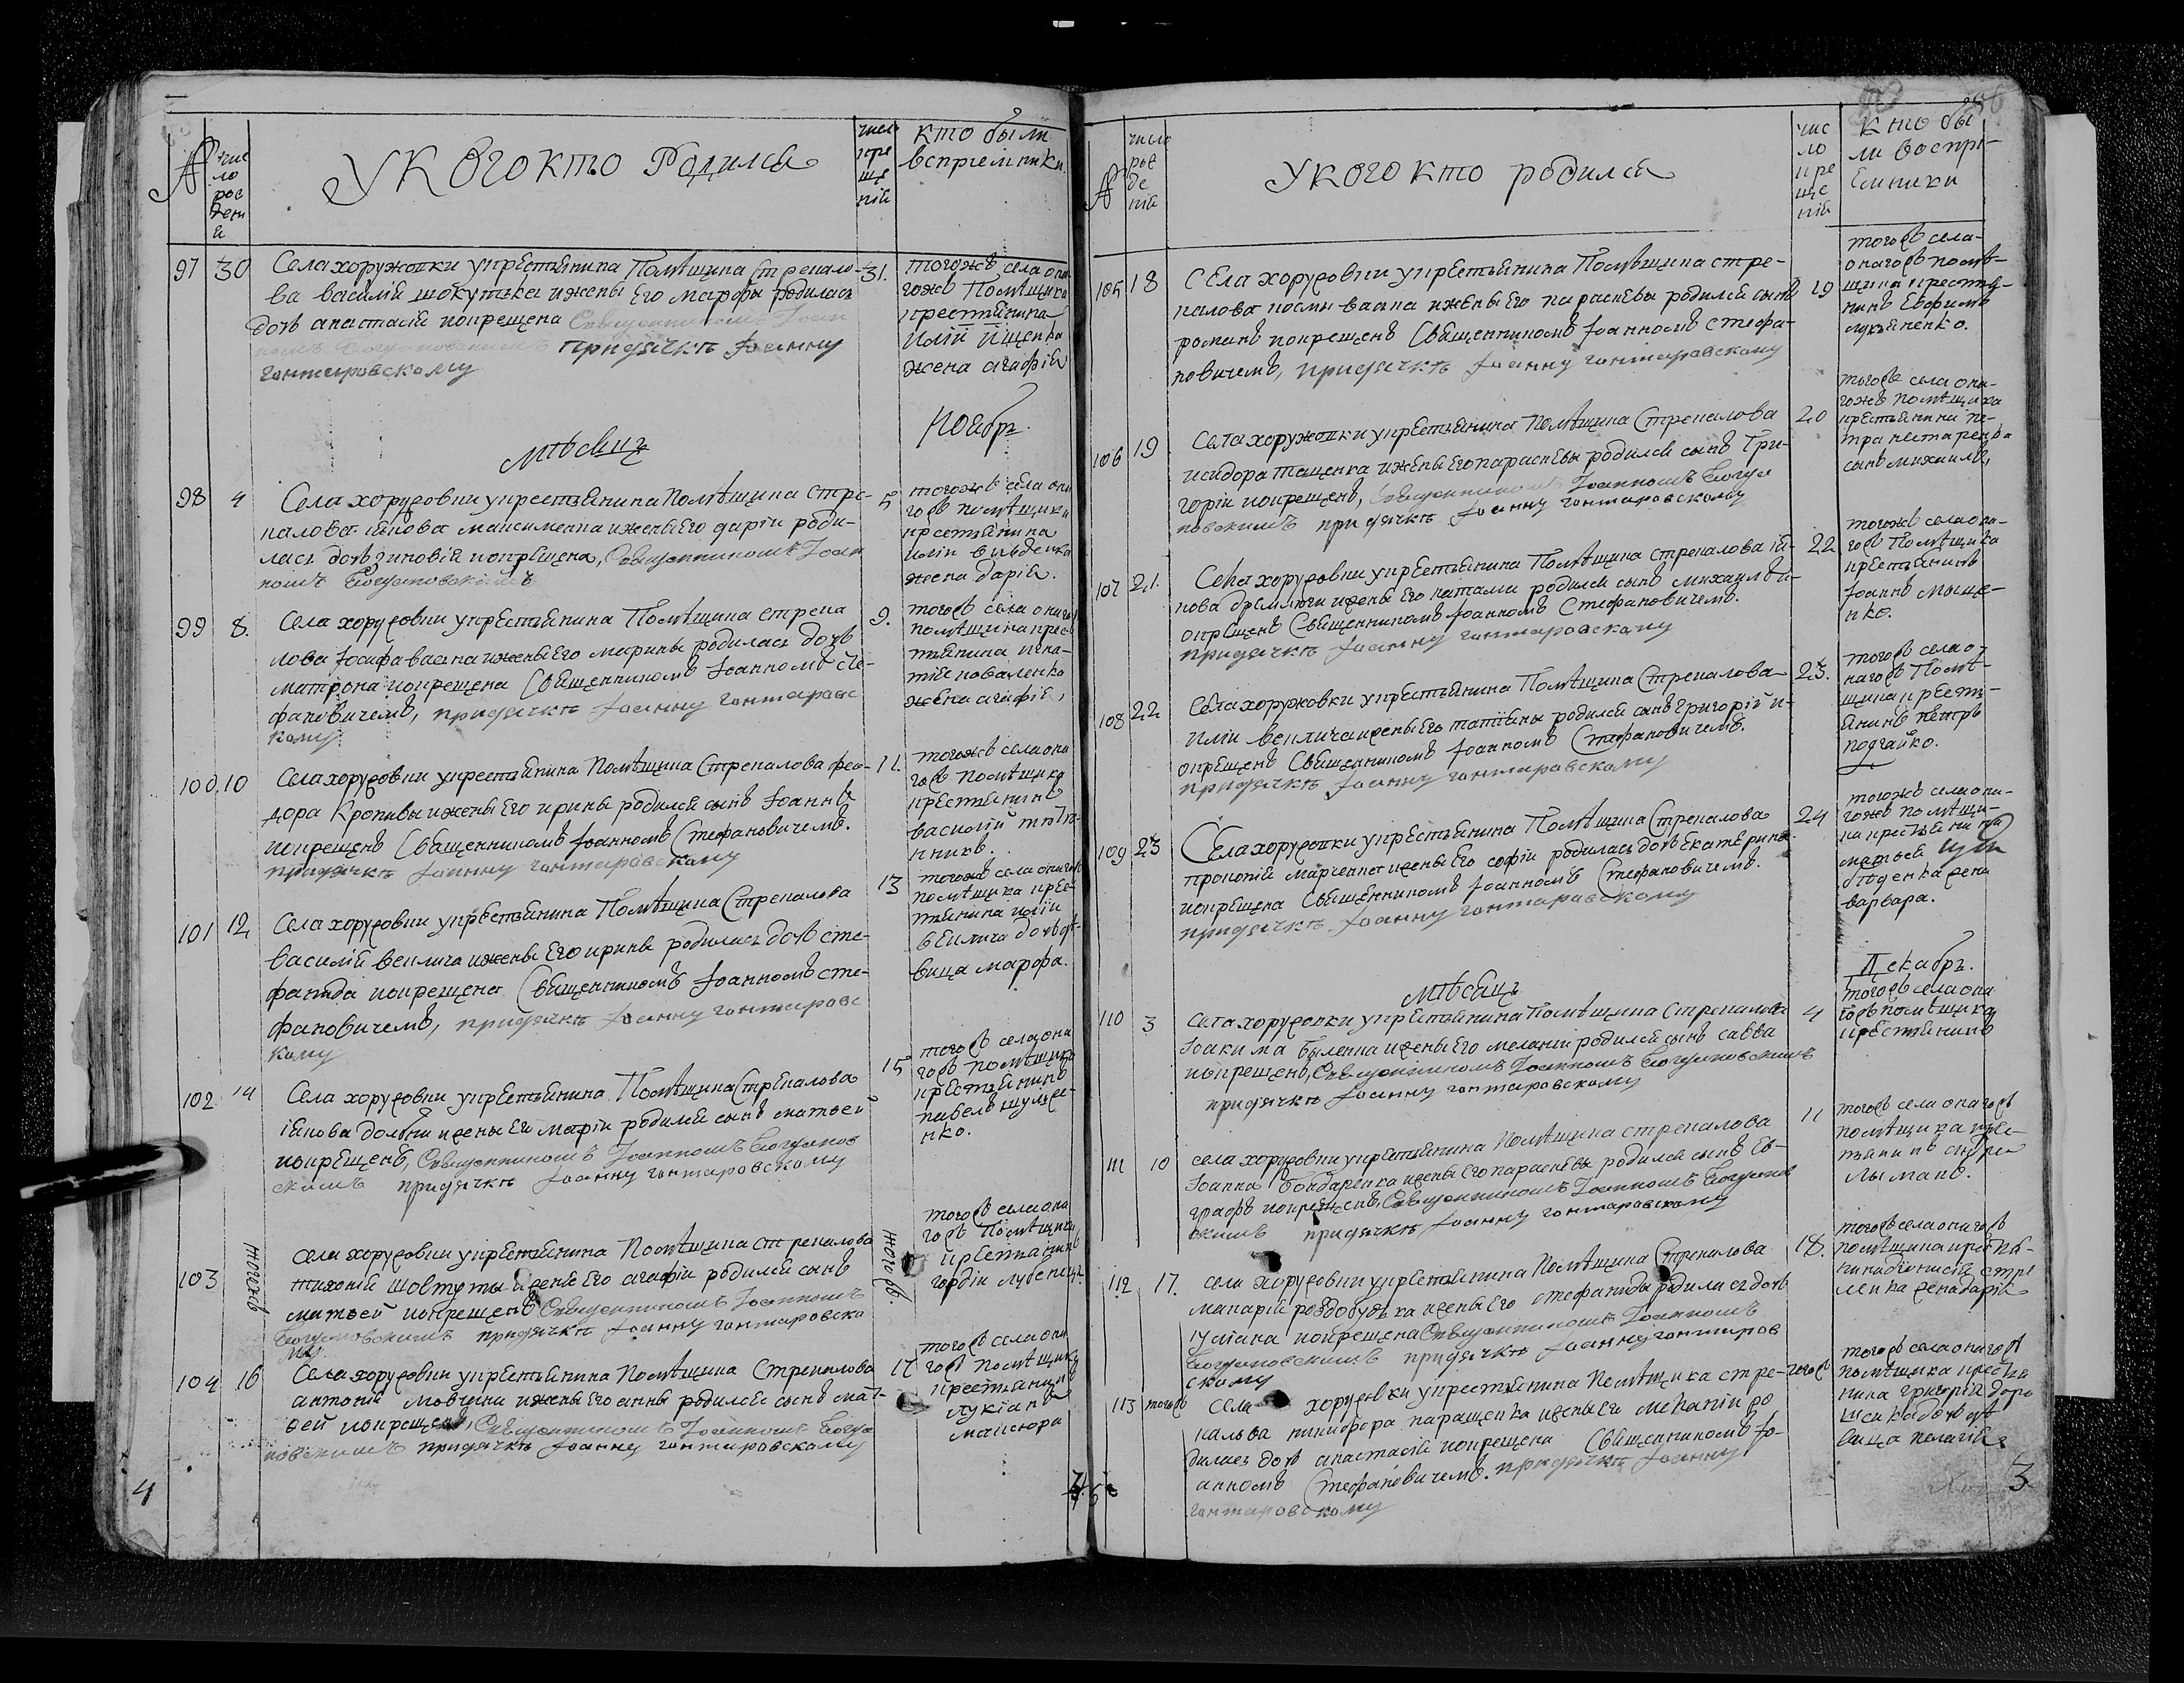 №
чис
ло
рож
дени
я
У КОГО КТО РОДИЛСЯ
число
кре
ще
ній
кто были
восприемники
97 30 Села хоружовки у крестьянина Помѣщика Стрекало-
ва василія шокутька и жены Его марфы родилась
дочь анастасія крещена Священникомъ Іоан
номъ Богуновскимъ при дячкѣ Іоанну
гонтаровскому
31. тогожъ села она-
гожъ Помѣщика
крестьянина
Иліи Ищенка
жена агафія
мѣсяцъ Ноябрь.
98 4 Села хоружовки у крестьянина Помѣщика стре-
калова іякова максименка и жены Его даріи роди-
лась дочь зиновія крещена, Священникомъ Іоан
номъ Богуновскимъ
5 тогожъ села она
гожъ помѣщика
крестьянина
иліи
жена дарія.
99 8. Села хоружовки у крестьянина Помѣщика стрека
лова Іосифа и жены Его марины родилась дочь
матрона крещена Священникомъ Іоанномъ Сте-
фановичемъ, при дячкѣ Іоанну гонтаровс
кому
9. тогожъ села онагожъ
помѣщика крес
тьянина игна-
тія коваленко
жена агафія,
100 10 Села хоружовки у крестьянина Помѣщика Стрекалова фео-
дора Кропивы и жены Его ирины родился сынъ Іоаннъ
крещенъ Священникомъ Іоанномъ Стефановичемъ.
при дячкѣ Іоанну гонтаровскому
11. тогожъ села она
гожъ помѣщика
крестьянинъ
василій
101 12 Села хоружовки у крестьянина Помѣщика Стрекалова
василія великога и жены Его ирины родилась дочь сте-
фанида крещена Священникомъ Іоанномъ сте-
фановичемъ, при дячкѣ Іоанну гонтаровс
кому
13 тогожъ села онагожъ
помѣщика крес
тьянина иліи
дочь дѣ-
вица марфа.
102 14 Села хоружовки у крестьянина Помѣщика Стрекалова
іякова долбни и жены Его маріи родился сынъ матвей
крещенъ, Священникомъ Іоанномъ Богунов
скимъ при дячкѣ Іоанну гонтаровскому
15 тогожъ села она
гожъ помѣщика
крестьянинъ
павелъ шулже-
нко.
103 тогожъ Села хоружовки у крестьянина Помѣщика стрекалова
тихонія и жены Его агафіи родился сынъ
матвей крещенъ Священникомъ Іоанномъ
Богуновскимъ при дячкѣ Іоанну гонтаровско
му
тогожъ. тогожъ села она
гожъ Помѣщика
крестьянинъ
гордій лубенецъ
104 16 Села хоружовки у крестьянина Помѣщика Стрекалова
антонія мовчана и жены Его анны родился сынъ мат-
вей крещенъ, Священникомъ Іоанномъ Богу
новскимъ при дячкѣ Іоанну гонтаровскому
17 тогожъ села она
гожъ помѣщика
крестьянинъ
лукіанъ
4
№
число
рож
де
ній
У КОГО КТО РОДИЛСЯ
чис
ло
кре
ще
ній
кто бы
ли воспрі-
емники
105 18 Села хоружовки у крестьянина Помѣщика стре-
калова и жены Его параскевы родился сынъ
романъ крещенъ Священникомъ Іоанномъ Стефа-
новичемъ, при дячкѣ Іоанну гонтаровскому
19 тогожъ села-
онагожъ помѣ-
щика крестья-
нинъ Евфимъ
лукьяненко.
106 19 Села хоружовки у крестьянина Помѣщика Стрекалова
исидора тащенка и жены Его параскевы родился сынъ Гри-
горій крещенъ, Священникомъ Іоанномъ Богу
новскимъ при дячкѣ Іоанну гонтаровскому
20 тогожъ села она-
гожъ помѣщика
крестьянина пе-
тра нестаренка
сынъ михаилъ,
107 21. Села хоружовки у крестьянина Помѣщика стрекалова ія-
кова дремлюги и жены Его наталіи родился сынъ михаилъ и-
окрещенъ Священникомъ Іоанномъ Стефановичемъ.
при дячкѣ Іоанну гонтаровскому
22 тогожъ села она-
гожъ Помѣщика
крестьянинъ
Іоаннъ моще-
нко.
108 22 Села хоружовки у крестьянина Помѣщика Стрекалова
иліи и жены Его татіяны родился сынъ Григорій и-
окрещенъ Священникомъ Іоанномъ Стефановичемъ.
при дячкѣ Іоанну гонтаровскому
23. тогожъ села о-
нагожъ Помѣ-
щика кресть-
янинъ петръ
подгайко.
109 23 Села хоружовки у крестьянина Помѣщика Стрекалова
прокопія марченка и жены Его софіи родилась дочь Екатерина
крещена Священникомъ Іоанномъ Стефановичемъ.
при дячкѣ Іоанну гонтаровскому
24 тогожъ села она-
гожъ помѣщи-
ка крестьянина
матвея
жена
варвара.
мѣсяцъ Декабрь.
110 3 Села хоружовки у крестьянина Помѣщика Стрекалова
Іоакима быленка и жены Его меланіи родился сынъ савва
крещенъ, Священникомъ Іоанномъ Богуновскимъ
при дячкѣ Іоанну гонтаровскому
4 тогожъ села она
гожъ помѣщика
крестьянинъ
111 10 села хоружовки у крестьянина Помѣщика стрекалова
Іоанна бондаренка и жены Его параскевы родился сынъ Ев-
графъ крещенъ, Священникомъ Іоанномъ Богунов
скимъ при дячкѣ Іоанну гонтаровскому
11 тогожъ села онагожъ
помѣщика крес-
тьянинъ андрей
лыманъ.
112 17. села хоружовки у крестьянина Помѣщика Стрекалова
макарія роздобудька и жены Его стефаниды родилась дочь
уліана крещена Священникомъ Іоанномъ
Богуновскимъ при дячкѣ Іоанну гонтаров
скому
18. тогожъ села онагожъ
помѣщика крестья-
нина діонисія стре
ленка жена дарія
113 тогожъ Села хоружовки у крестьянина Помѣщика стре-
калова никифора паращенка и жены Его меланіи ро
дилась дочь анастасія крещена Священникомъ Іо-
анномъ Стефановичемъ. при дячкѣ Іоанну
гонтаровскому
тогожъ тогожъ села онагожъ
помѣщика крестья
нина григорія доро
шенка дочь дѣ
вица пелагія
3